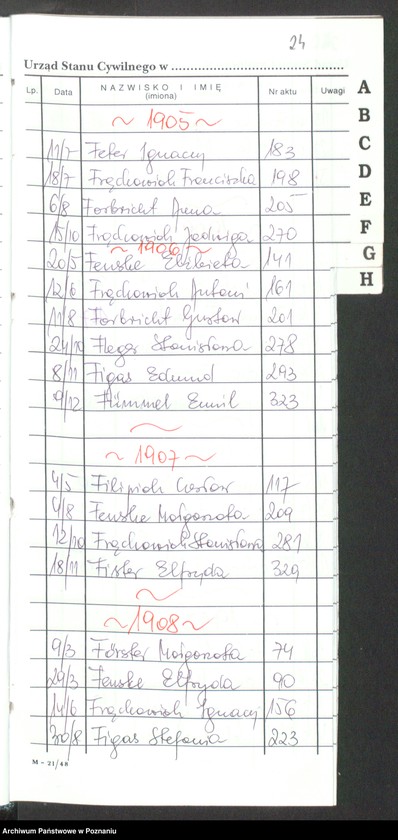 24
Urząd Stanu Cywilnego w
Lp. Data NAZWISKO I IMIĘ (imiona) Nr aktu Uwagi
~ 1905 ~
11/7 Fefer Ignacy 183
18/7 Frąckowiak Franciszka 198
6/8 Forbricht Anna 205
15/10 Frąckowiak Jadwiga 270
~ 1906 ~
20/5 Fenske Elżbieta 141
12/6 Frąckowiak Antoni 161
11/8 Forbricht Gustaw 201
24/10 Fleger Stanisława 278
8/11 Figas Edmund 293
9/12 Fümmel Emil 323
~ 1907 ~
4/5 Filipiak Czesław 117
9/8 Fenske Małgorzata 209
12/10 Frąckowiak Stanisława 281
18/11 Fister Elfryda 329
~ 1908 ~
9/3 Förster Małgorzata 74
29/3 Fenske Elfryda 90
14/6 Frąckowiak Ignacy 156
30/8 Figas Stefania 223
M - 21/48
A
B
C
D
E
F
G
H
Archiwum Państwowe w Poznaniu